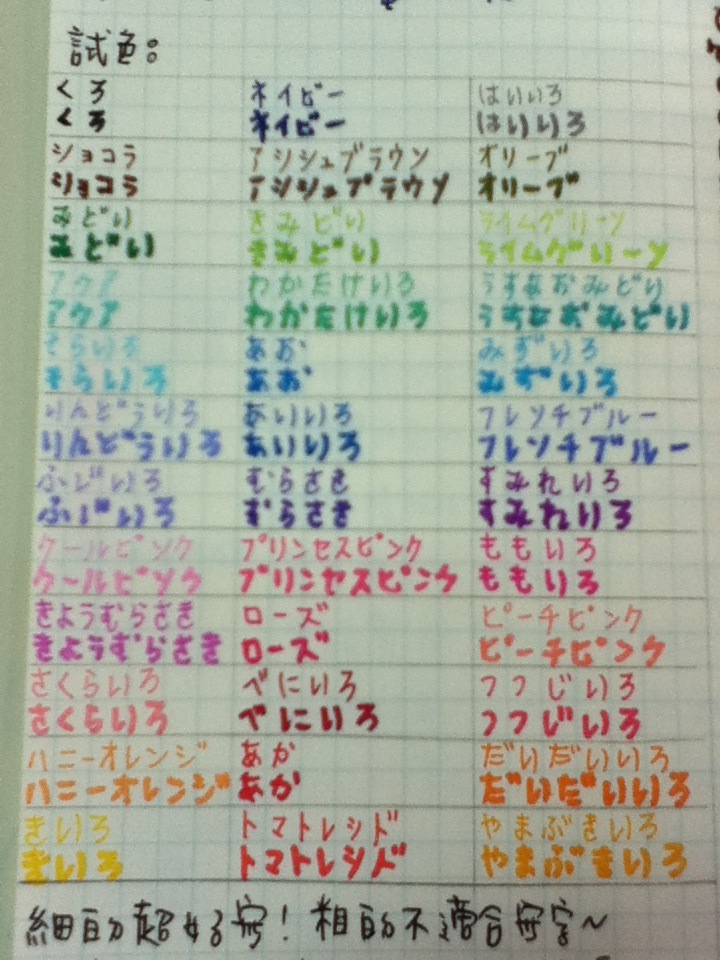 試色:
くろ ネイビー はいいろ
くろ ネイビー はいいろ
ショコラ アシシュブラウン オリーブ
ショコラ アシシュブラウン オリーブ
みどり きみどり ライムグリーン
みどり きみどり ライムグリーン
アクア わかたけいろ うすあおみどり
アクア わかたけいろ うすあおみどり
そらいろ あお みずいろ
そらいろ あお みずいろ
りんどういろ あいいろ フレンチブルー
りんどういろ あいいろ フレンチブルー
ふじいろ むらさき すみれいろ
ふじいろ むらさき すみれいろ
クールピンク プリンセスピンク ももいろ
クールピンク プリンセスピンク ももいろ
きょうむらさき ローズ ピーチピンク
きょうむらさき ローズ ピーチピンク
さくらいろ べにいろ つつじいろ
さくらいろ べにいろ つつじいろ
ハニーオレンジ あか だいだいいろ
ハニーオレンジ あか だいだいいろ
きいろ トマトレッド やまぶきいろ
きいろ トマトレッド やまぶきいろ
細的超好寫!粗的不適合寫字~